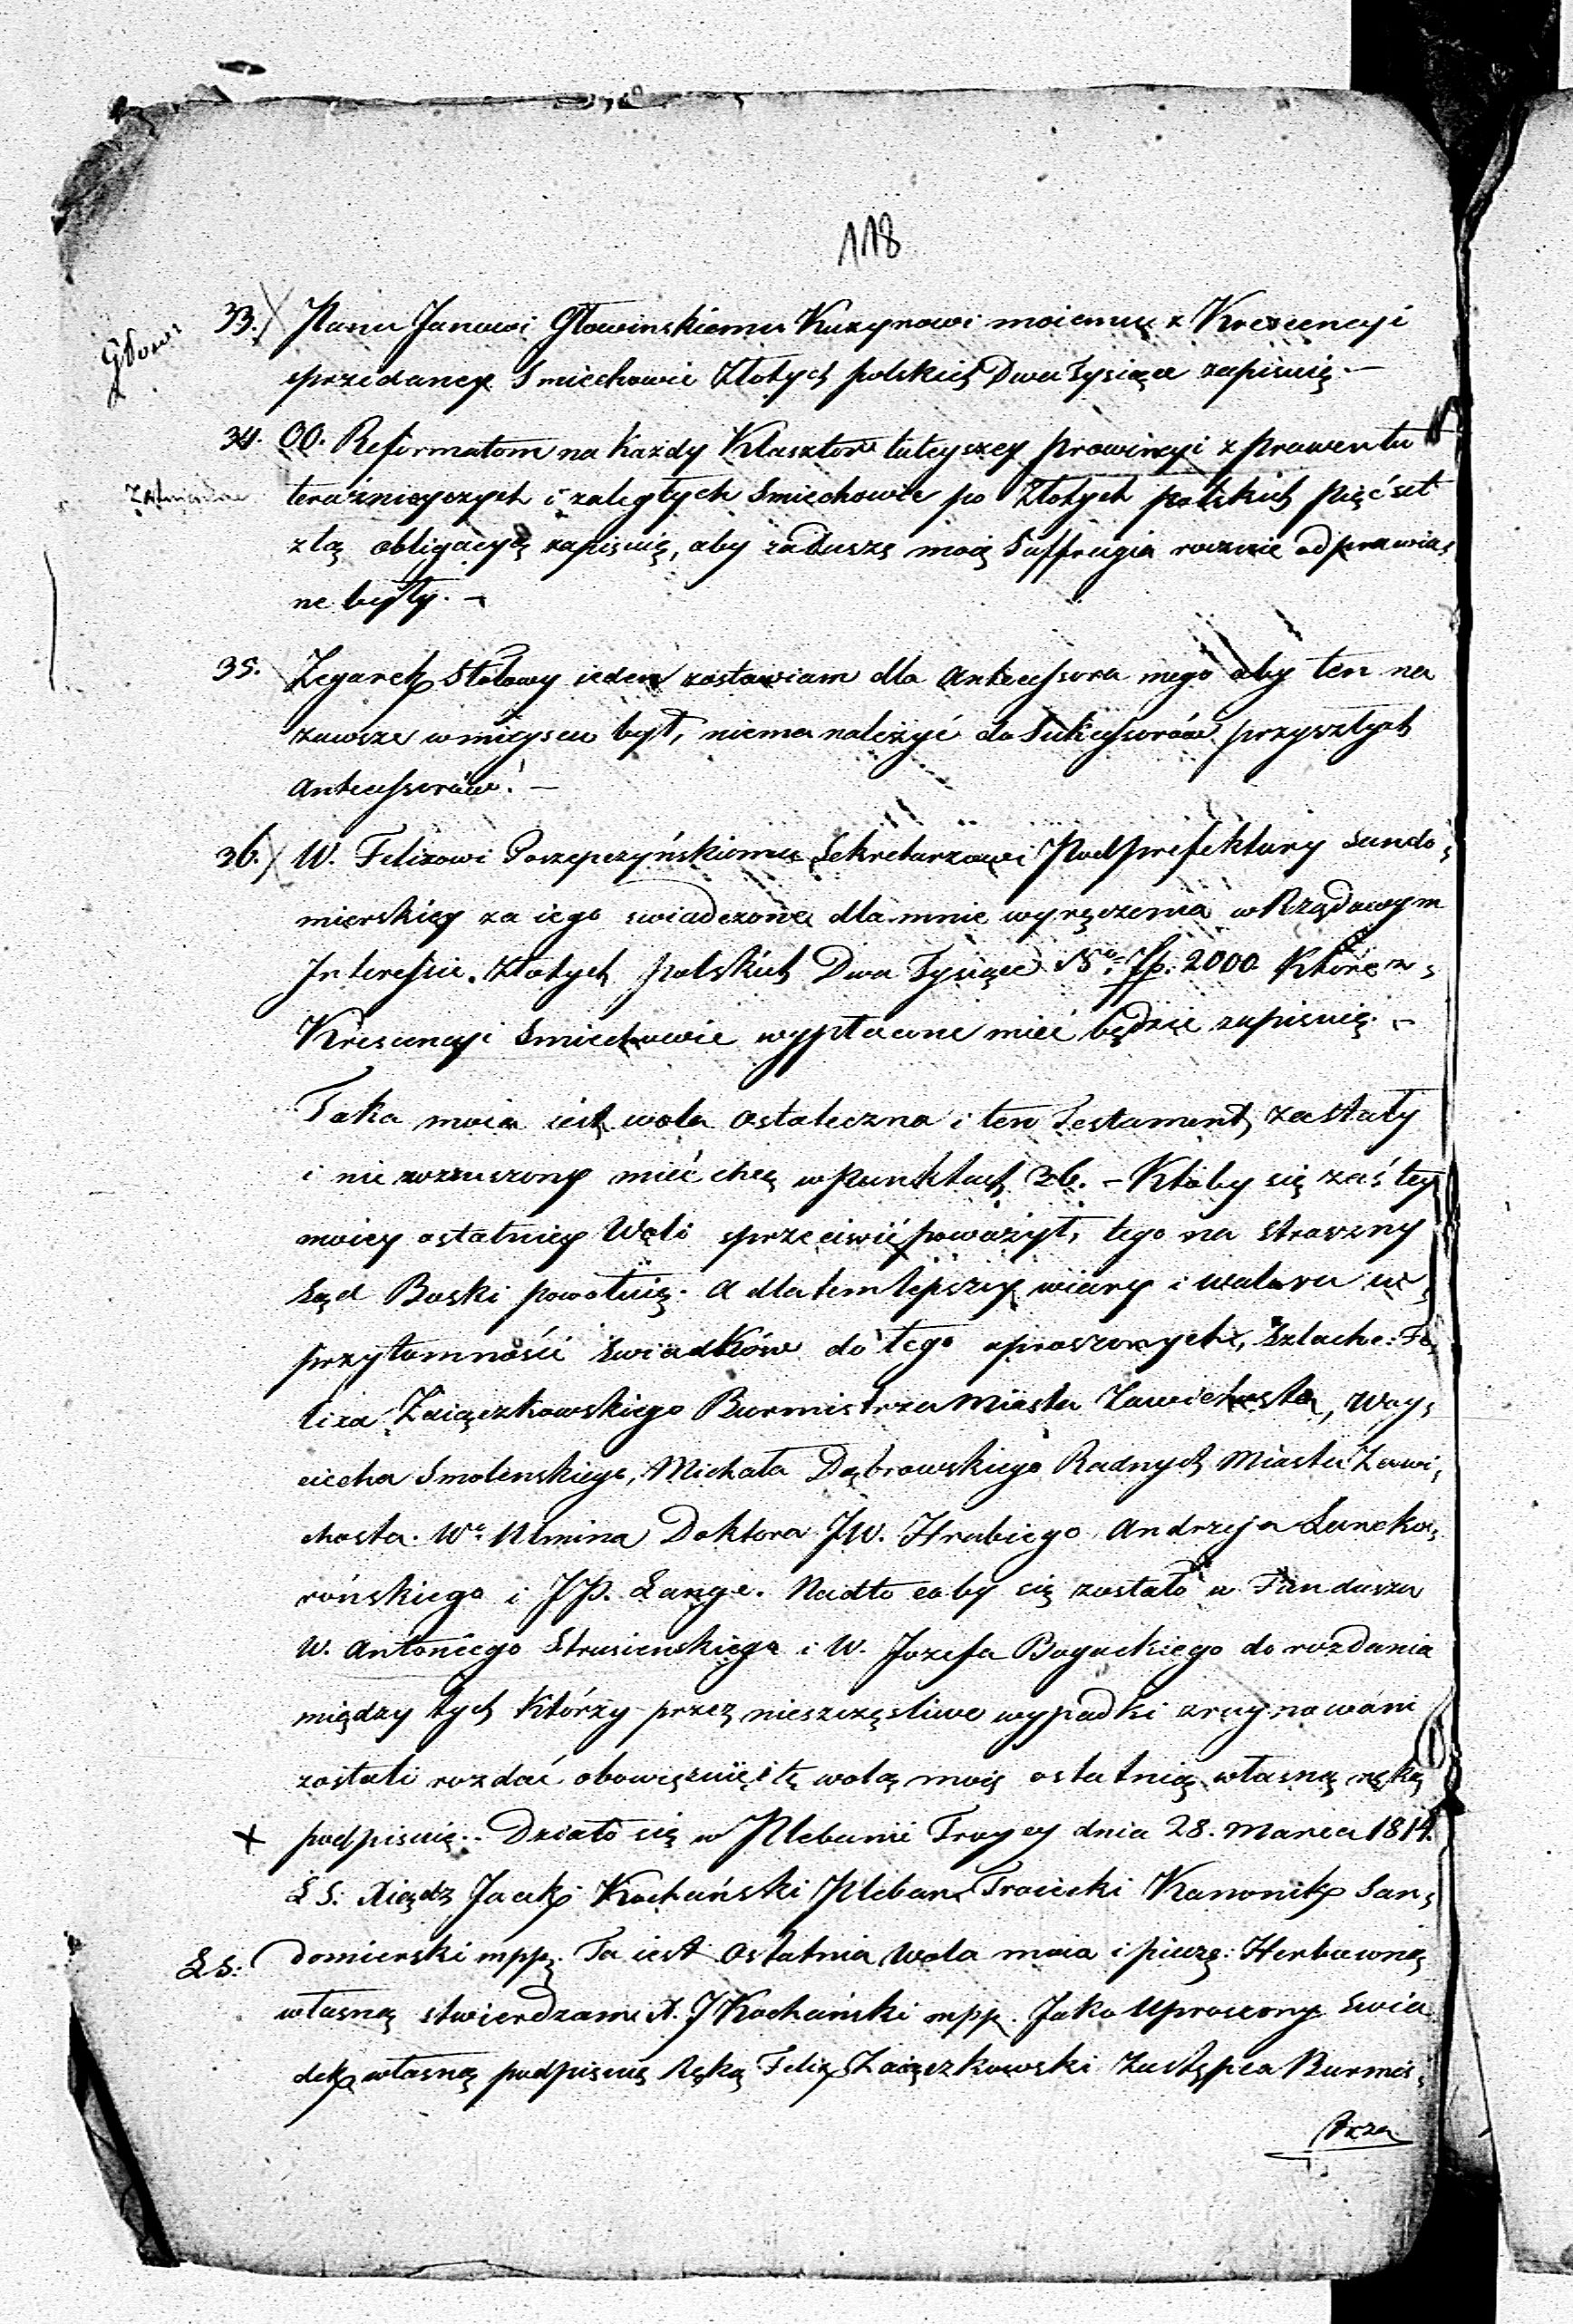 118
Głowin
33. Panu Janowi Głowinskiemu Kuzynowi moiemu z Krescencyi
sprzedaney Smiechowie Złotych polskich Dwa Tysiące zapisuię. —
34. OO. Reformatom na każdy Klasztor tuteyszey prowincyi z prowentu
teraźnieyszych i zaległych Smiechowie po Złotych polskich pięćset
z tą obligacyą zapisuię, aby za duszę moią Suffragia rocznie odprawia,
ne były. —
35. Zegarek Stołowy ieden zostawiam dla Antecessora mego aby ten na
zawsze w mieyscu był, niema należyć do Sukcessorów przyszłych
Antecessorów. —
36. W. Felixowi Poszepczyńskiemu Sekretarzowi Podprefektury Sando,
mierskiey za iego swiadczone dla mnie wyręczenia w Rządowym
Interessie, Złotych polskich Dwa Tysiące No. Zp. 2000 Które z,
Krescencyi Smiechowie wypłacone mieć będzie zapisuię. —
Taka moia iest wola ostateczna i ten Testament za stały
i nie wzruszony mieć chcę w punktach 36. — Ktoby się zaś tey
moiey ostatniey Woli sprzeciwić poważył, tego na straszny
Sąd Boski powołuię. A dla tem lepszey wiary i waloru w,
przytomności swiadków do tego uproszonych, Szlache: Fe,
lixa Zaiączkowskiego Burmistrza Miasta Zawichosta, Woy,
ciecha Smolenskiego, Michała Dąbrowskiego Radnych Miasta Zawi,
chosta. W. Ulmina Doktora JW. Hrabiego Andrzeja Lancko,
rońskiego i JP. Lange. Nadto coby się zostało z Funduszu
W. Antoniego Strusienskiego i W. Jozefa Bogackiego do rozdania
między tych którzy przez nieszczęsliwe wypadki zruynowani
zostali rozdać obowięzuię i tę wolą moię ostatnią własną ręką
podpisuię. Działo się w Plebanii Troycy dnia 28. Marca 1814.
L S: Xiądz Jacek Kochański Pleban Troiecki Kanonik San,
L S: domierski mpp. Ta iest Ostatnia Wola moia i pieczę: Herbowną
własną stwierdzam X. J Kochański mpp. Jako Uproszony swia
dek własną podpisuię ręką Felix Zaiączkowski Zastępca Burmis,
trza